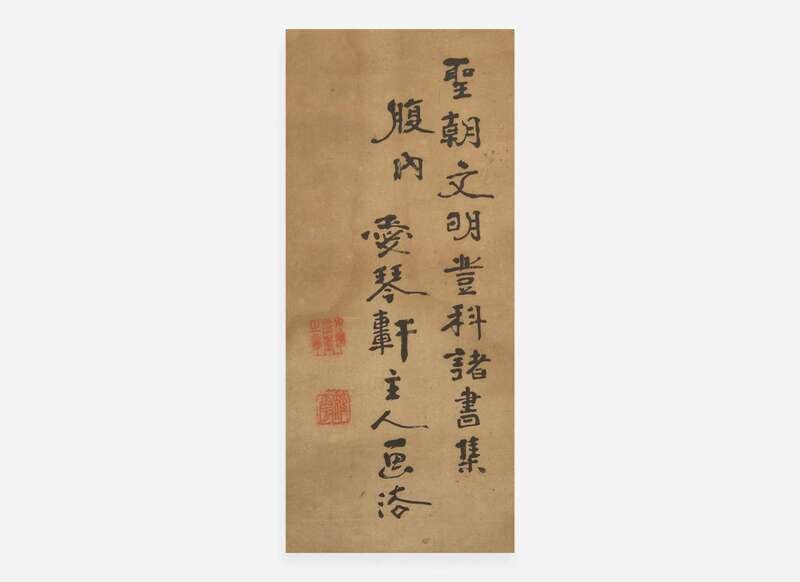 聖朝文明登科諸書集
腹內 愛琴軒主人画法